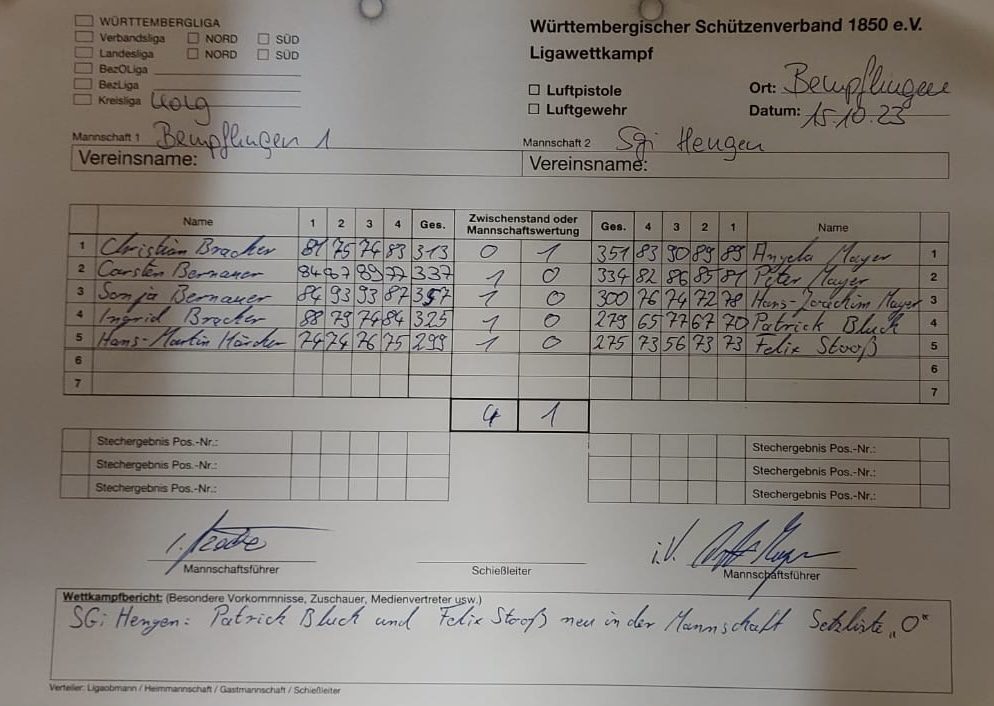 WÜRTTEMBERGLIGA
Verbandsliga NORD SÜD
Landesliga NORD SÜD
BezOLiga
BezLiga
Kreisliga
Württembergischer Schützenverband 1850 e.V.
Ligawettkampf
Luftpistole
Luftgewehr
Ort: Bempflingen
Datum: 15.10.23
Mannschaft 1 Bempflingen 1
Vereinsname:
Mannschaft 2 Sgi Hengen
Vereinsname:
Name 1 2 3 4 Ges. Zwischenstand oder Mannschaftswertung Ges. 4 3 2 1 Name
1 Christian Bracher 81 75 74 83 313 0 1 351 83 90 89 89 Angela Mayer 1
2 Carsten Bernauer 84 87 89 77 337 1 0 334 82 86 85 81 Peter Mayer 2
3 Sonja Bernauer 84 93 93 87 357 1 0 300 76 74 72 78 Hans-Joachim Mayer 3
4 Ingrid Bracher 88 79 74 84 325 1 0 279 65 77 67 70 Patrick Bluck 4
5 Hans-Martin 74 74 76 75 299 1 0 275 73 56 73 73 Felix Stooß 5
6 6
7 7
4 1
Stechergebnis Pos.-Nr.: Stechergebnis Pos.-Nr.:
Stechergebnis Pos.-Nr.: Stechergebnis Pos.-Nr.:
Stechergebnis Pos.-Nr.: Stechergebnis Pos.-Nr.:
i.V.
Mannschaftsführer Schießleiter Mannschaftsführer
Wettkampfbericht: (Besondere Vorkommnisse, Zuschauer, Medienvertreter usw.)
SGi Hengen: Patrick Bluck und Felix Stooß neu in der Mannschaft Setzliste „0“
Verteiler: Ligaobmann / Heimmannschaft / Gastmannschaft / Schießleiter